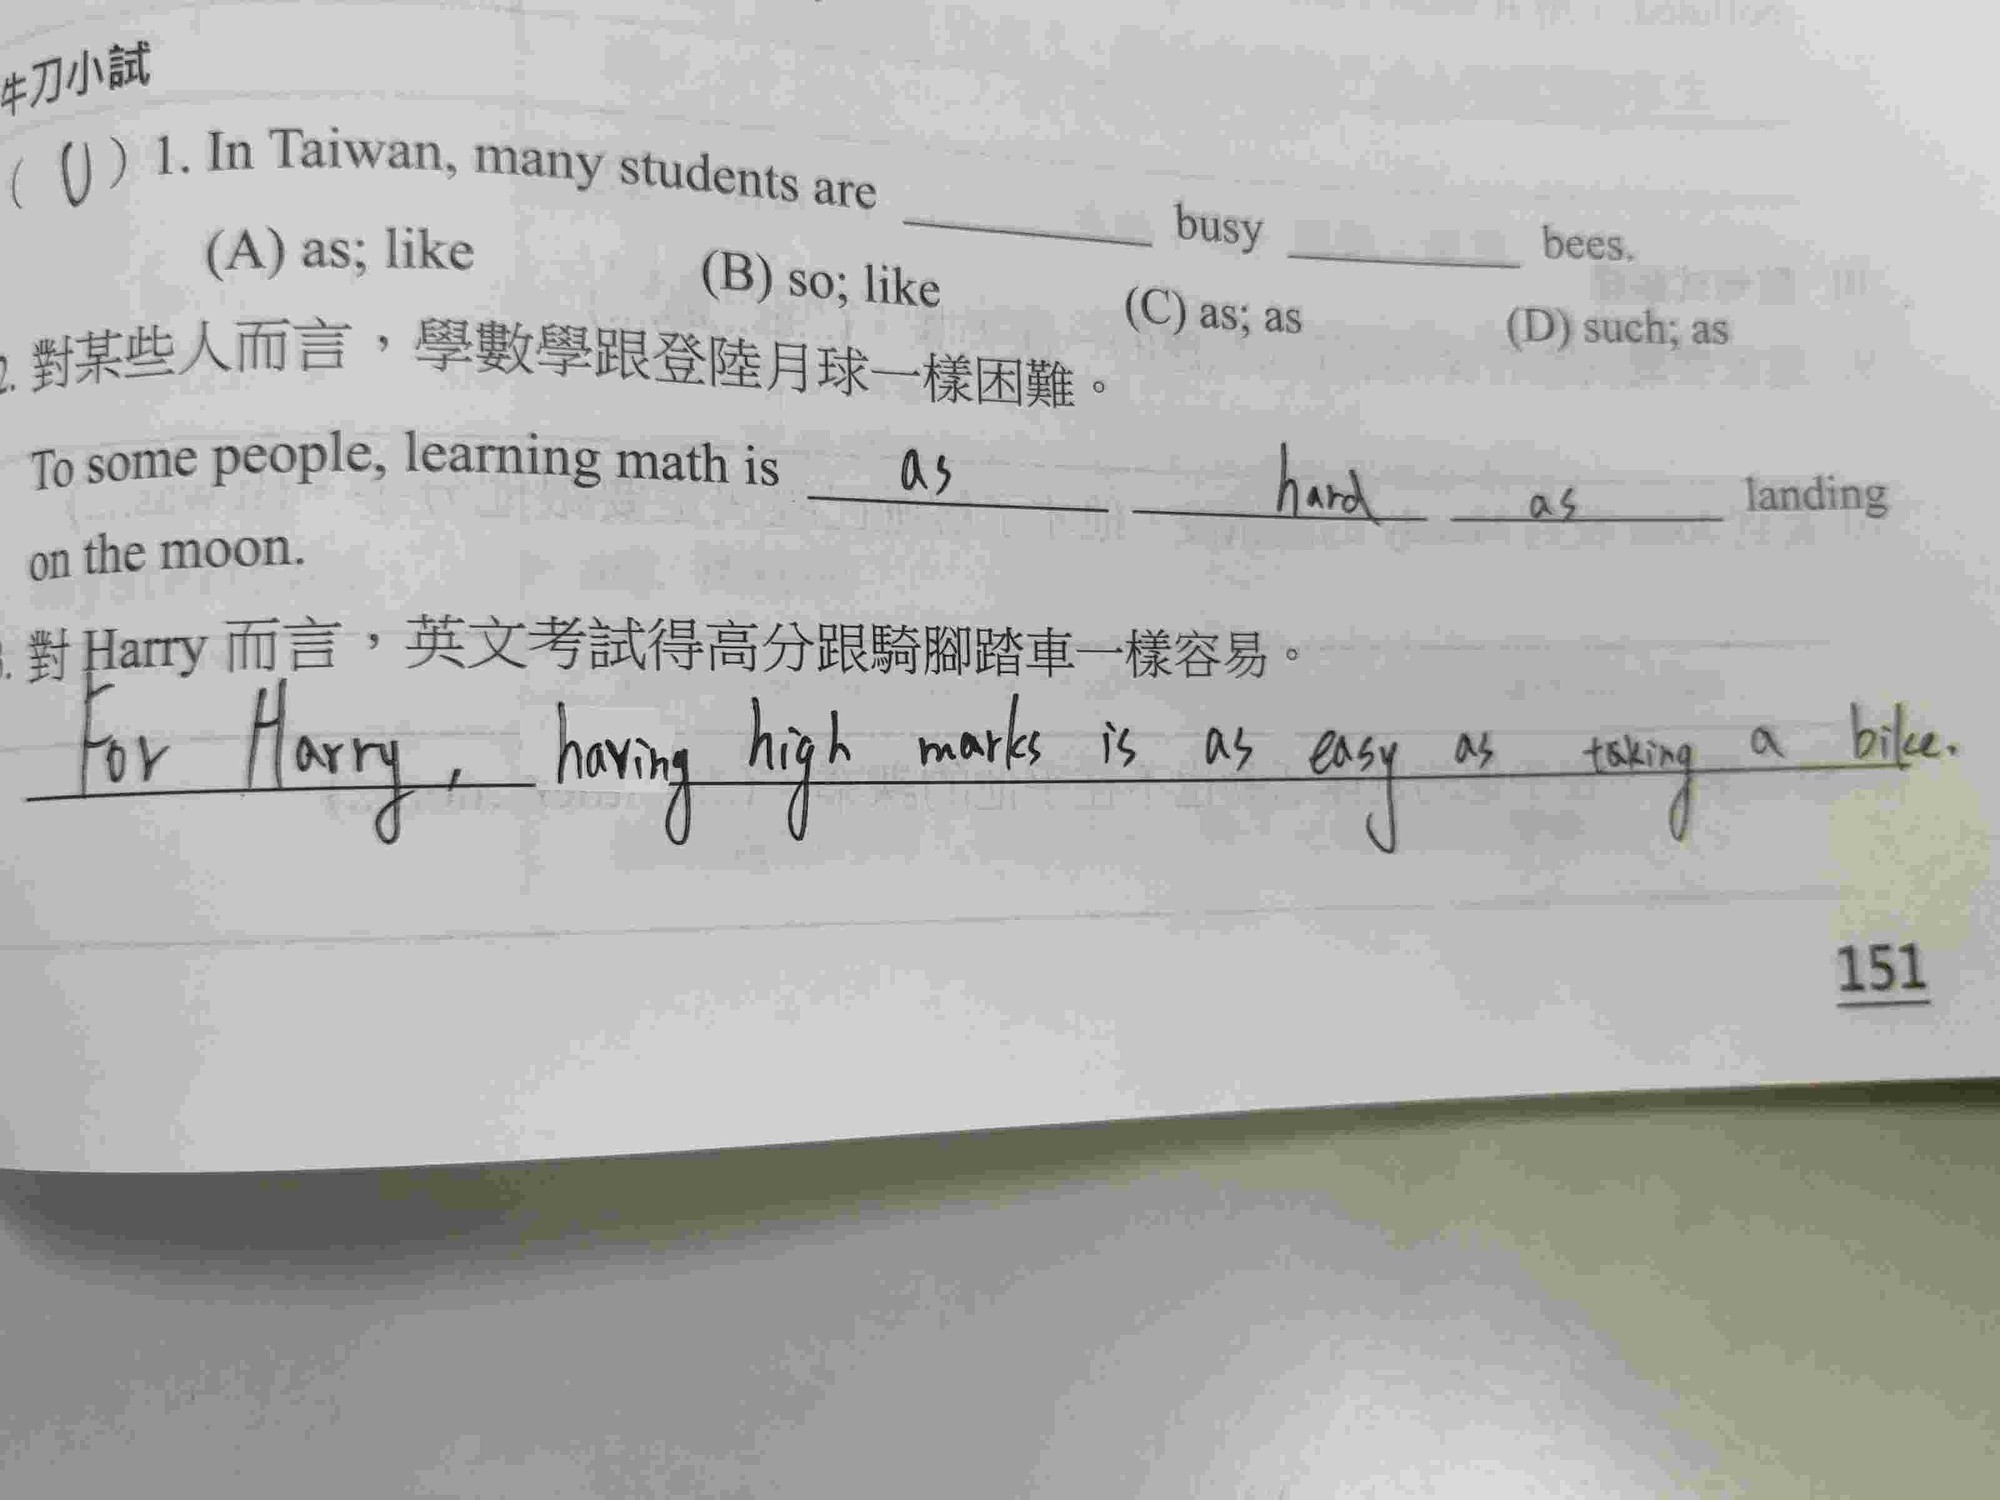 牛刀小試
( U ) 1. In Taiwan, many students are ______ busy ______ bees.
(A) as; like (B) so; like (C) as; as (D) such; as
2. 對某些人而言，學數學跟登陸月球一樣困難。
To some people, learning math is as hard as landing
on the moon.
3. 對 Harry 而言，英文考試得高分跟騎腳踏車一樣容易。
For Harry, having high marks is as easy as taking a bike.
151